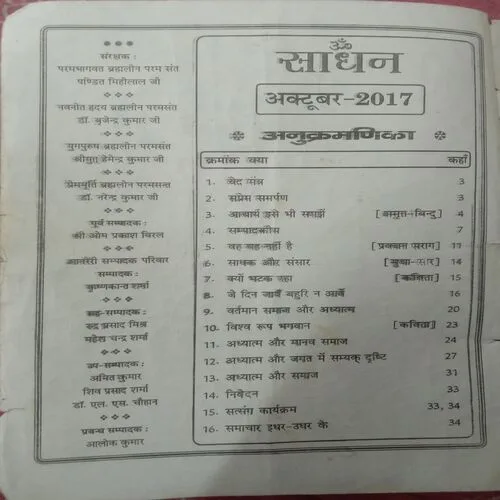 संरक्षक :
परमभागवत ब्रह्मलीन परम संत
पण्डित मिहीलाल जी
नवनीत हृदय ब्रह्मलीन परमसंत
डॉ. बृजेन्द्र कुमार जी
युगपुरुष ब्रह्मलीन परमसंत
श्रीयुत् हेमेन्द्र कुमार जी
प्रेममूर्ति ब्रह्मलीन परमसन्त
डॉ. नरेन्द्र कुमार जी
पूर्व सम्पादक :
श्री ओम प्रकाश विरल
आनरेरी सम्पादक परिवार
सम्पादक :
कृष्णकान्त शर्मा
सह-सम्पादक :
रुद्र प्रसाद मिश्र
महेश चन्द्र शर्मा
उप-सम्पादक :
अमित कुमार
शिव प्रसाद शर्मा
डॉ. एल. एस. चौहान
प्रबन्ध सम्पादक :
आलोक कुमार
ॐ
साधन
अक्टूबर-2017
अनुक्रमणिका
क्रमांक क्या कहाँ
1. वेद मंत्र 3
2. सप्रेम समर्पण 3
3. आचार्य इसे भी [अमृत-बिन्दु] 4
4. सम्पादकीय 7
5. वह यह नहीं है [प्रवचन पराग] 11
6. साधक और संसार [सुधा-सार] 14
7. क्यों भटक रहा [कविता] 15
8. जे दिन जावें बहुरि न आवें 16
9. वर्तमान समाज और अध्यात्म 20
10. विश्व रूप भगवान [कविता] 23
11. अध्यात्म और मानव समाज 24
12. अध्यात्म और जगत में सम्यक् दृष्टि 27
13. अध्यात्म और समाज 31
14. निवेदन 33
15. सत्संग कार्यक्रम 33, 34
16. समाचार इधर-उधर के 34